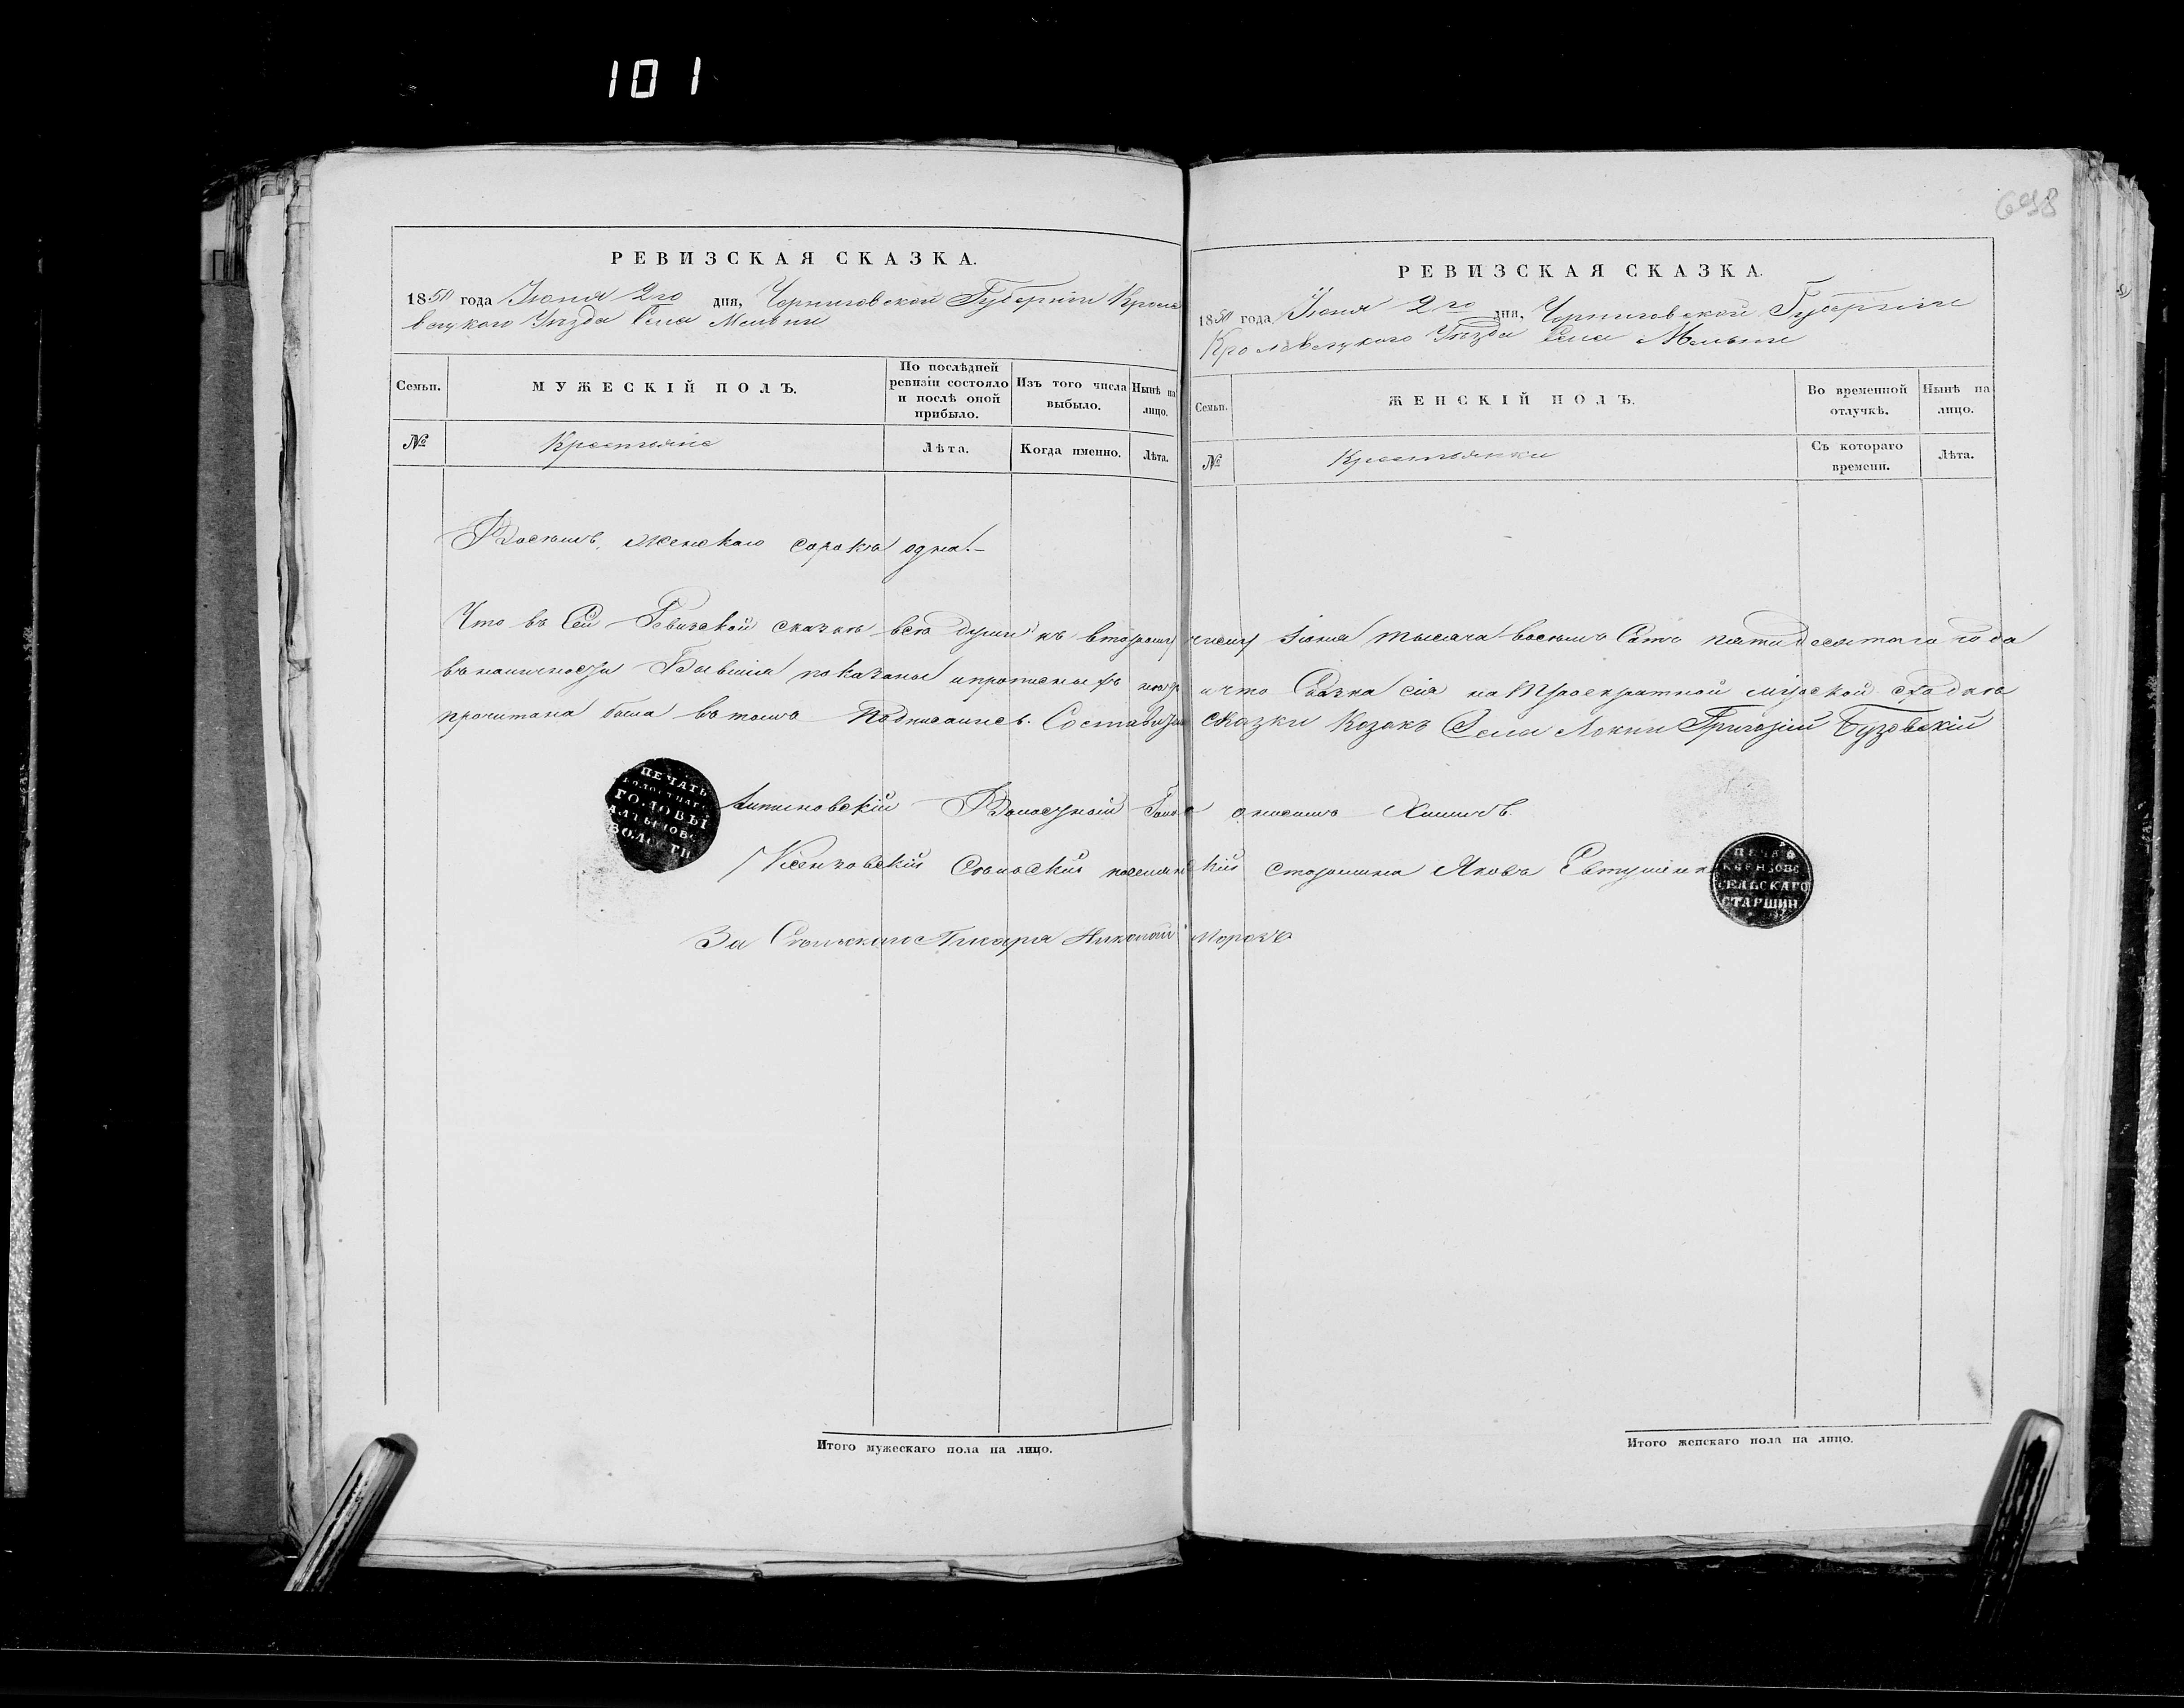 101
698
РЕВИЗСКАЯ СКАЗКА.
1850 года Июня 2го дня, Черниговской Губерніи Кроле
вецкаго Уѣзда Села Мельни
Семьи. МУЖЕСКІЙ ПОЛЪ. По послѣдней ревизіи состояло и послѣ оной прибыло. Изъ того числа выбыло. Нынѣ на лицо.
№ Крестьяне Лѣта. Когда именно. Лѣта.
РЕВИЗСКАЯ СКАЗКА.
1850 года Июня 2го дня, Черниговской Губерніи
Кролевецкаго Уѣзда Села Мельни
Семьи. ЖЕНСКІЙ ПОЛЪ. Во временной отлучкѣ. Нынѣ на лицо.
№ Крестьянки Съ котораго времени. Лѣта.
Восемь, женскаго сорокъ одна.
Что въ Сей Ревизской сказкѣ всѣ души къ второму числу Іюня тысяча восемь Сотъ пятидесятого года
въ наличности Бывшія показаны и прописныхъ нетъ и что Сказка сія на троекратной мірской сходкѣ
прочитана была въ томъ Подписались. Составитель сказки Козакъ Села Локни Григорій Бузовскій
ПЕЧАТЬ
ВОЛОСТНАГО
ГОЛОВЫ
АЛТЫНОВС
ВОЛОСТИ
Алтыновскій Волосной Голова
Ксензовскій Сельскій поселянскій старшина Яковъ Евтушенко
ПЕЧА
КСЕНЗОВС
СЕЛЬСКАГО
СТАРШИН
За Сельскаго Писаря Николай Морозъ
Итого мужескаго пола на лицо.
Итого женскаго пола на лицо.